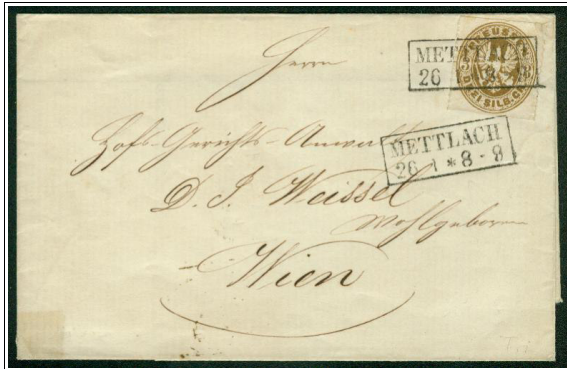 METTLACH
26 1 * 8 - 9
PREUSSEN
DREI SILB.GR.
Herrn
METTLACH
26 1 * 8 - 9
Hofs-Gerichts-Anwalt
D. J. Weissel
Wohlgeboren
Wien